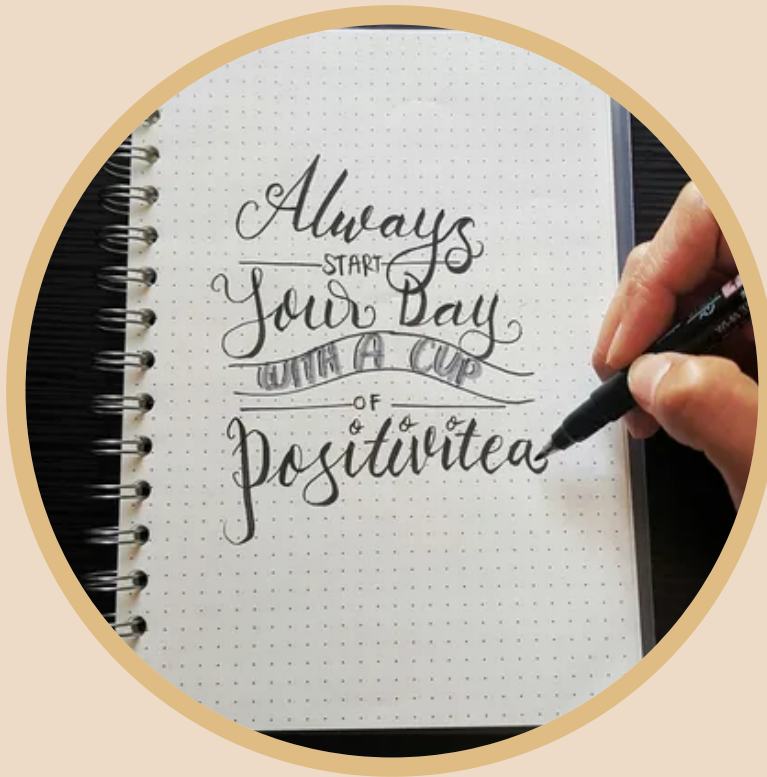 Always
START
Your Day
WITH A CUP
OF
positivitea